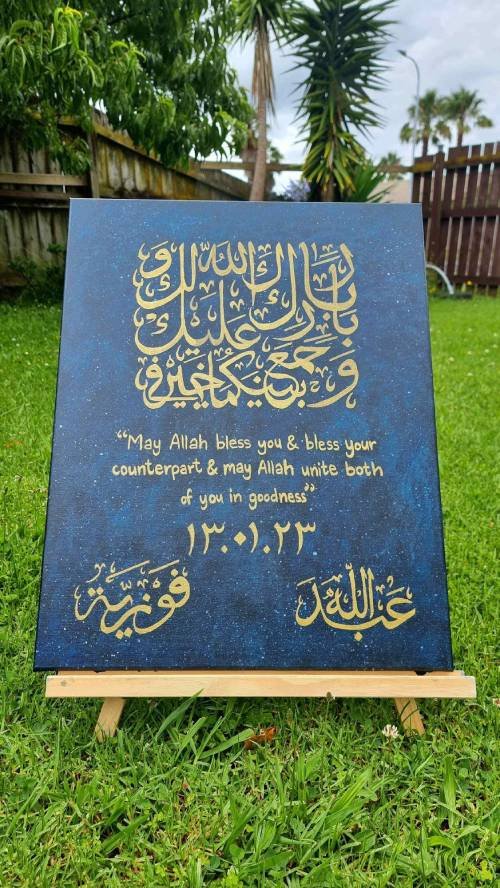 بارك الله لك و
بارك عليك
و جمع بينكما في خير
“May Allah bless you & bless your
counterpart & may Allah unite both
of you in goodness”
١٣.٠١.٢٣
عبدالله فوزية